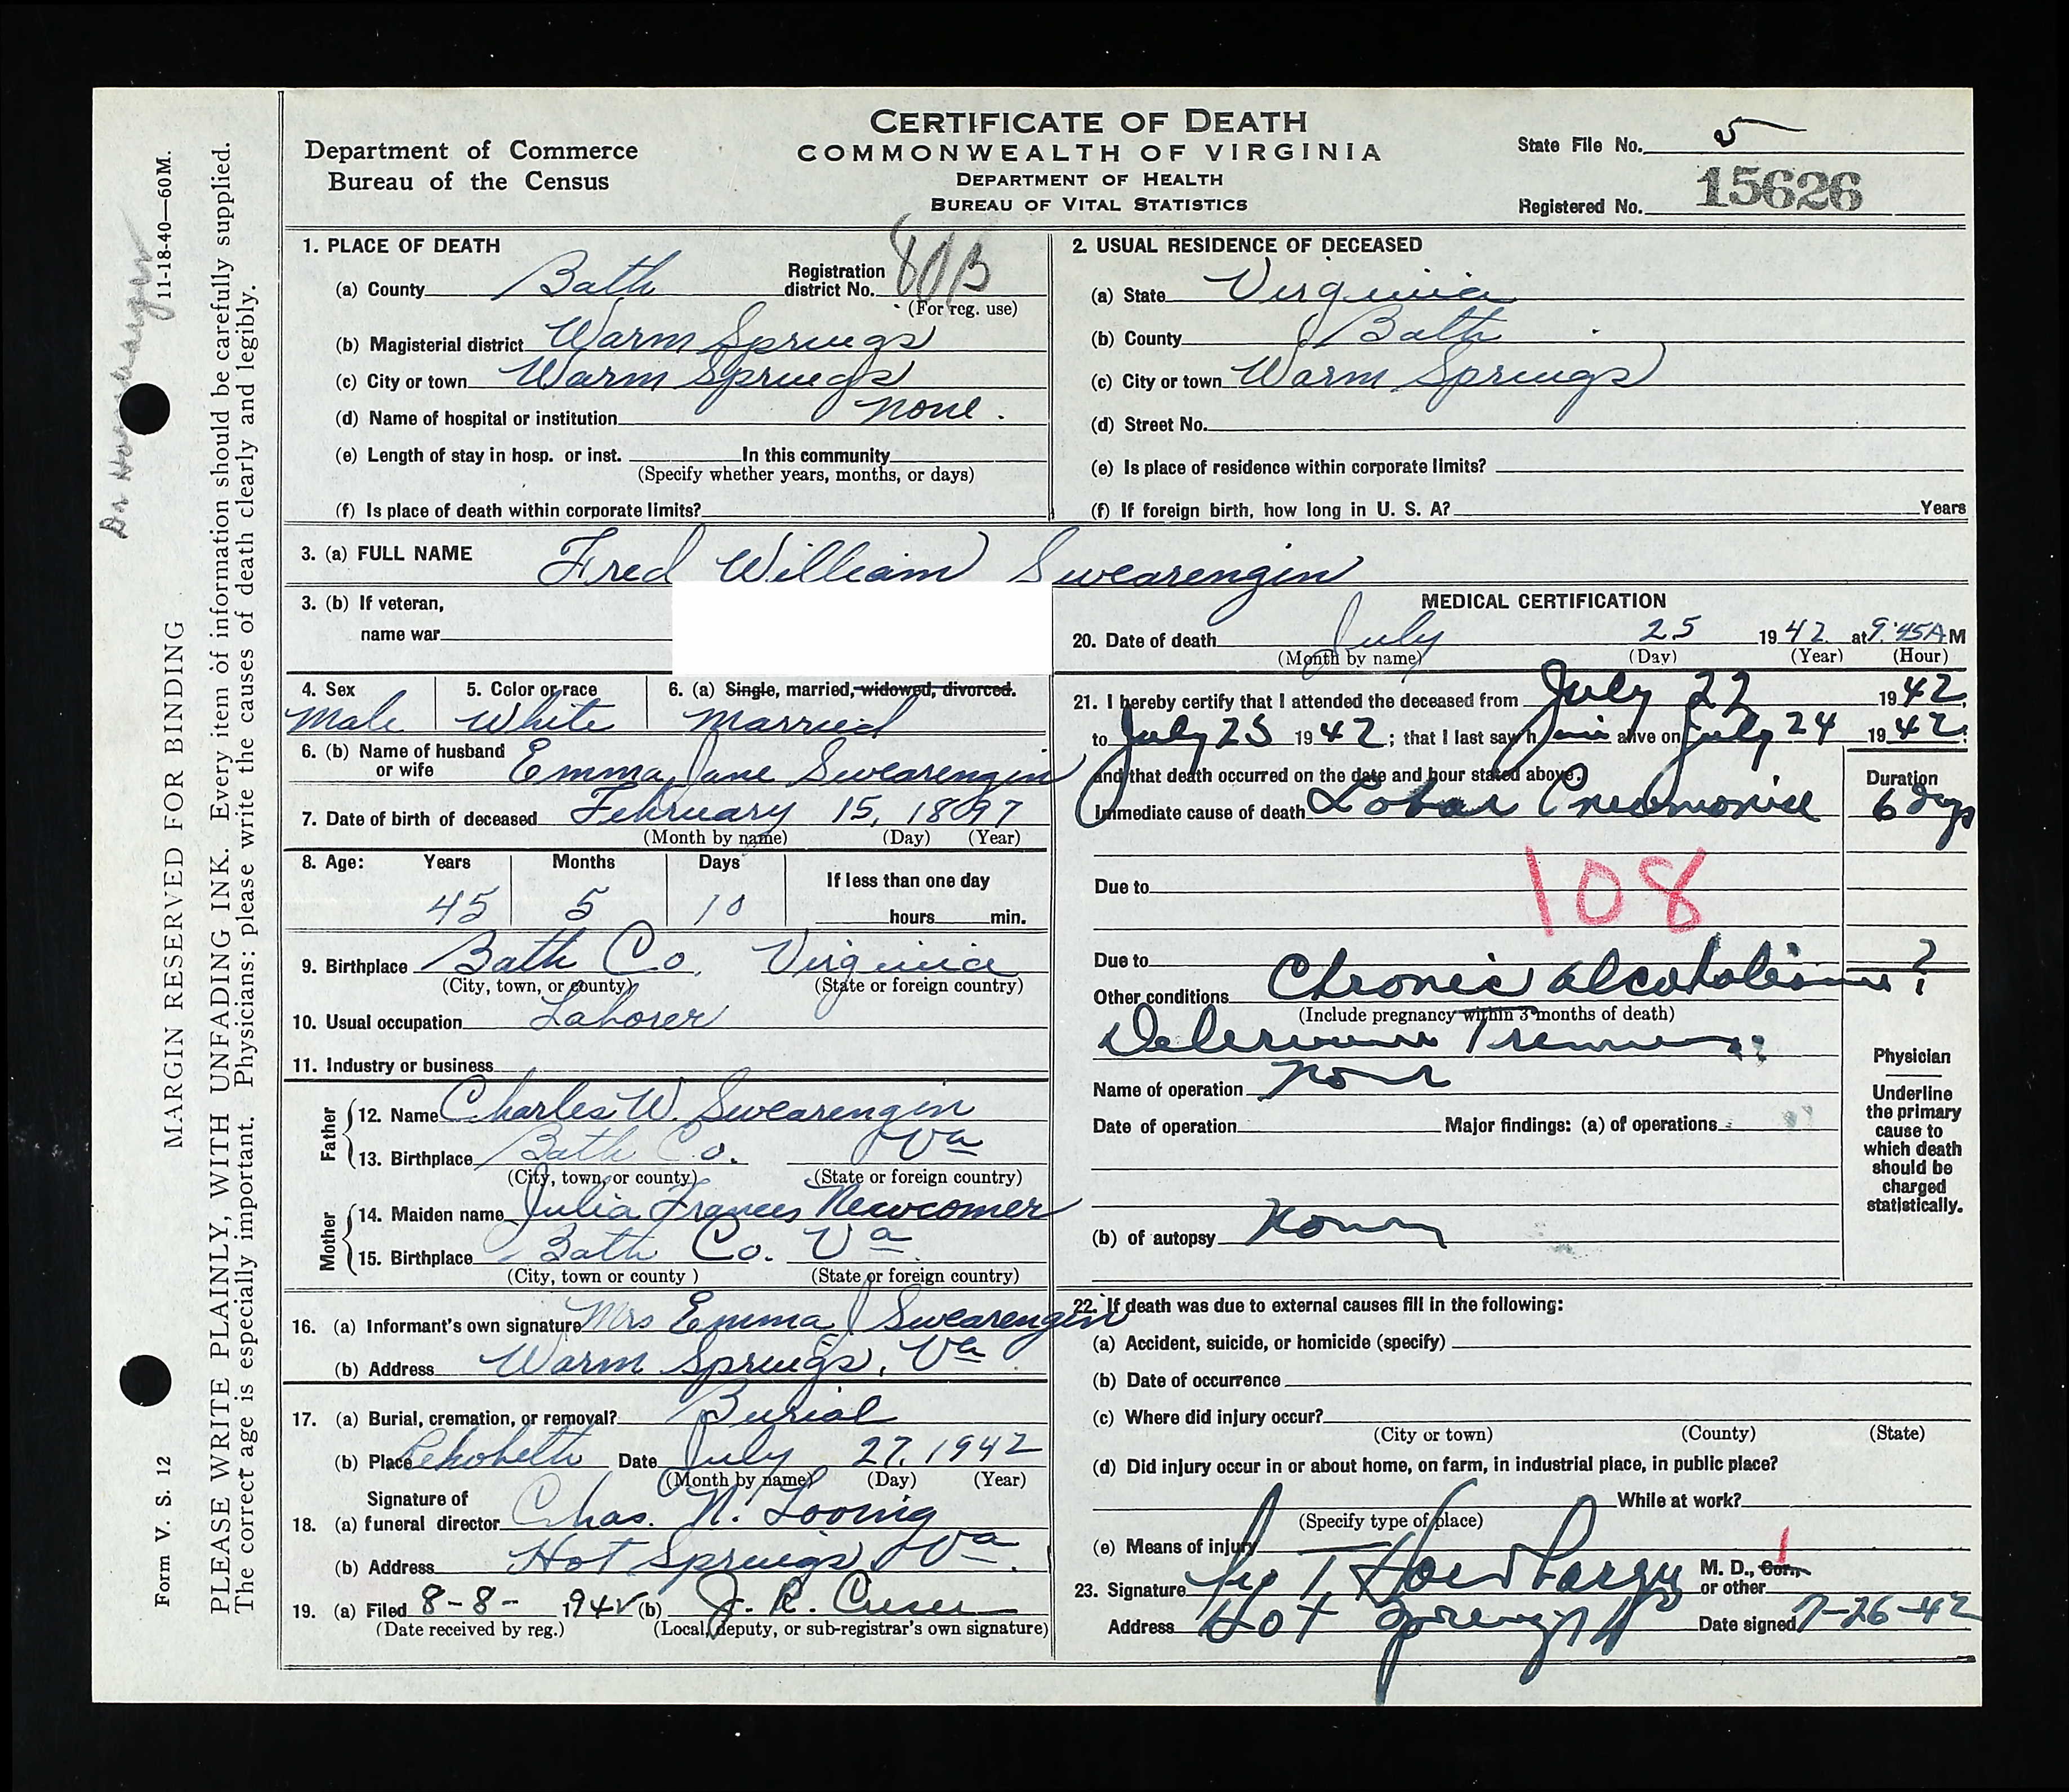 CERTIFICATE OF DEATH
COMMONWEALTH OF VIRGINIA
DEPARTMENT OF HEALTH
BUREAU OF VITAL STATISTICS
Department of Commerce
Bureau of the Census
State File No. 5
Registered No. 15626
11-18-40—60M.
MARGIN RESERVED FOR BINDING
PLEASE WRITE PLAINLY, WITH UNFADING INK. Every item of information should be carefully supplied.
The correct age is especially important. Physicians: please write the causes of death clearly and legibly.
Form V. S. 12
1. PLACE OF DEATH
(a) County Bath Registration district No. 80B
(For reg. use)
(b) Magisterial district Warm Springs
(c) City or town Warm Springs
(d) Name of hospital or institution none.
(e) Length of stay in hosp. or inst. In this community
(Specify whether years, months, or days)
(f) Is place of death within corporate limits?
2. USUAL RESIDENCE OF DECEASED
(a) State Virginia
(b) County Bath
(c) City or town Warm Springs
(d) Street No.
(e) Is place of residence within corporate limits?
(f) If foreign birth, how long in U. S. A? Years
3. (a) FULL NAME Fred William Swearengin
3. (b) If veteran,
name war
4. Sex Male
5. Color or race White
6. (a) Single, married, widowed, divorced. Married
6. (b) Name of husband or wife Emma Jane Swearengin
7. Date of birth of deceased February 15, 1897
(Month by name) (Day) (Year)
8. Age: Years Months Days If less than one day
45 5 10 hours min.
9. Birthplace Bath Co. Virginia
(City, town, or county) (State or foreign country)
10. Usual occupation Laborer
11. Industry or business
Father
12. Name Charles W. Swearengin
13. Birthplace Bath Co. Va
(City, town, or county) (State or foreign country)
Mother
14. Maiden name Julia Frances Newcomer
15. Birthplace Bath Co. Va
(City, town or county) (State or foreign country)
16. (a) Informant's own signature Mrs Emma J Swearengin
(b) Address Warm Springs, Va.
17. (a) Burial, cremation, or removal? Burial
(b) Place Rehobeth Date July 27, 1942
(Month by name) (Day) (Year)
18. (a) Signature of funeral director Chas. N. Loonig
(b) Address Hot Springs, Va.
19. (a) Filed 8-8- 1942 (b) J. R.
(Date received by reg.) (Local, deputy, or sub-registrar's own signature)
MEDICAL CERTIFICATION
20. Date of death July 25 1942 at 9:45 A M
(Month by name) (Day) (Year) (Hour)
21. I hereby certify that I attended the deceased from July 22 1942,
to July 25 1942; that I last saw him alive on July 24 1942.
and that death occurred on the date and hour stated above.
Duration
Immediate cause of death Lobar Pneumonia 6 days
108
Due to
Due to
Other conditions Chronic alcoholism ?
(Include pregnancy within 3 months of death)
Delerium Tremens
Name of operation None
Date of operation Major findings: (a) of operations
(b) of autopsy None
Physician
Underline
the primary
cause to
which death
should be
charged
statistically.
22. If death was due to external causes fill in the following:
(a) Accident, suicide, or homicide (specify)
(b) Date of occurrence
(c) Where did injury occur?
(City or town) (County) (State)
(d) Did injury occur in or about home, on farm, in industrial place, in public place?
While at work?
(Specify type of place)
(e) Means of injury
23. Signature M. D., Cor., or other 1
Address Hot Springs Date signed 7-26-42